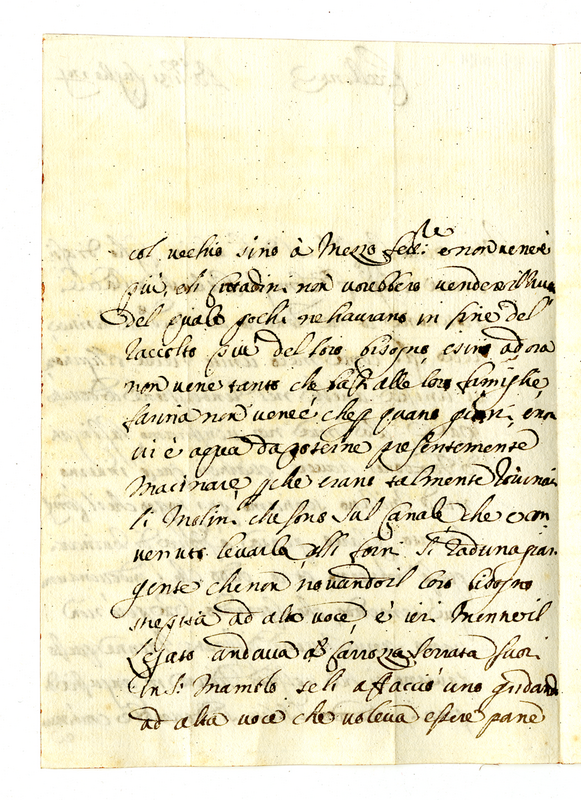 col vechio sino à Mezzo e non vene è
più, e li Cittadini non vorebbero vendere il
del quale pochi ne havrano in fine del
raccolto più del loro bisogno, e sino ad ora
non vene tanto che basti alle loro famiglie
farina non vene è che p quatro giorni,
vi è aqua da poterne presentemente
macinare, pche erano talmente rovinati
li Molini che sono sul Canale che
venuto levarla, alli forni si raduna gran
gente che non trovando il loro bisogno
strepita ad alta voce, e ieri mentre il
Legato andava Carrozza serrata fuori
in S. Mamolo se li affacciò uno gridando
ad alta voce che voleva essere pane